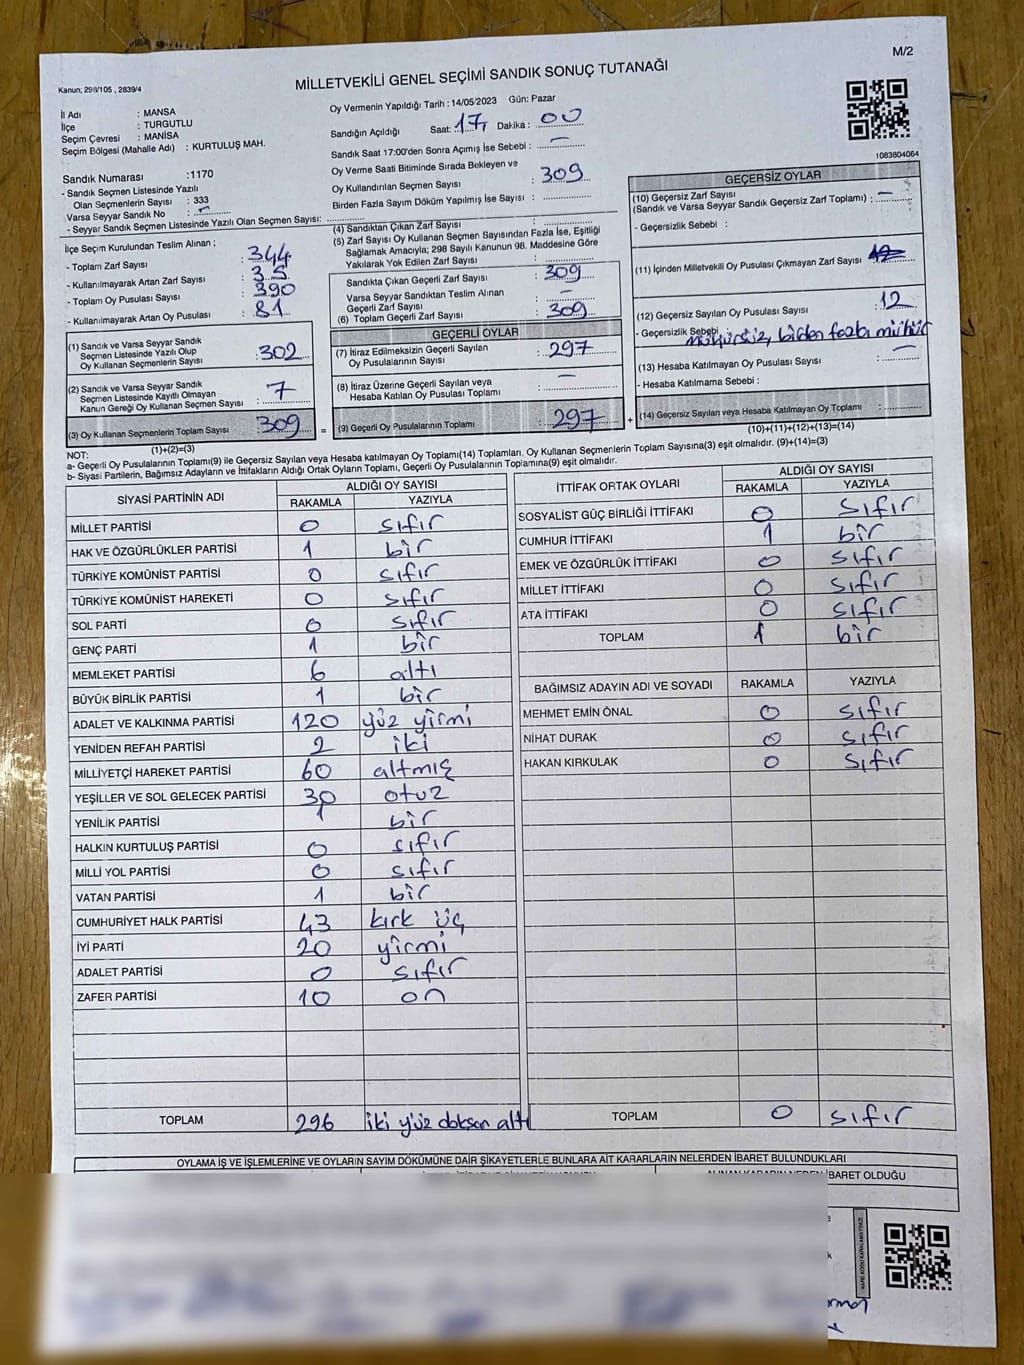 M/2
Kanun; 298/105 , 2839/4
MİLLETVEKİLİ GENEL SEÇİMİ SANDIK SONUÇ TUTANAĞI
İl Adı : MANSA
İlçe : TURGUTLU
Seçim Çevresi : MANİSA
Seçim Bölgesi (Mahalle Adı) : KURTULUŞ MAH.
Oy Vermenin Yapıldığı Tarih : 14/05/2023 Gün: Pazar
Sandığın Açıldığı Saat: 17, Dakika : 00
Sandık Saat 17:00'den Sonra Açımış İse Sebebi : —
Oy Verme Saati Bitiminde Sırada Bekleyen ve
Oy Kullandırılan Seçmen Sayısı : 309
Birden Fazla Sayım Döküm Yapılmış İse Sayısı :
1083804064
Sandık Numarası :1170
- Sandık Seçmen Listesinde Yazılı
Olan Seçmenlerin Sayısı : 333
Varsa Seyyar Sandık No :
- Seyyar Sandık Seçmen Listesinde Yazılı Olan Seçmen Sayısı:
İlçe Seçim Kurulundan Teslim Alınan ;
- Toplam Zarf Sayısı : 344
- Kullanılmayarak Artan Zarf Sayısı : 35
- Toplam Oy Pusulası Sayısı : 390
- Kullanılmayarak Artan Oy Pusulası : 81
(1) Sandık ve Varsa Seyyar Sandık
Seçmen Listesinde Yazılı Olup
Oy Kullanan Seçmenlerin Sayısı : 302
(2) Sandık ve Varsa Seyyar Sandık
Seçmen Listesinde Kayıtlı Olmayan
Kanun Gereği Oy Kullanan Seçmen Sayısı : 7
(3) Oy Kullanan Seçmenlerin Toplam Sayısı : 309
(1)+(2)=(3)
(4) Sandıktan Çıkan Zarf Sayısı :
(5) Zarf Sayısı Oy Kullanan Seçmen Sayısından Fazla İse, Eşitliği
Sağlamak Amacıyla; 298 Sayılı Kanunun 98. Maddesine Göre
Yakılarak Yok Edilen Zarf Sayısı :
Sandıkta Çıkan Geçerli Zarf Sayısı : 309
Varsa Seyyar Sandıktan Teslim Alınan
Geçerli Zarf Sayısı : —
(6) Toplam Geçerli Zarf Sayısı : 309
GEÇERLİ OYLAR
(7) İtiraz Edilmeksizin Geçerli Sayılan
Oy Pusulalarının Sayısı : 297
(8) İtiraz Üzerine Geçerli Sayılan veya
Hesaba Katılan Oy Pusulası Toplamı : —
= (9) Geçerli Oy Pusulalarının Toplamı : 297 +
GEÇERSİZ OYLAR
(10) Geçersiz Zarf Sayısı
(Sandık ve Varsa Seyyar Sandık Geçersiz Zarf Toplamı) : —
- Geçersizlik Sebebi :
(11) İçinden Milletvekili Oy Pusulası Çıkmayan Zarf Sayısı :
(12) Geçersiz Sayılan Oy Pusulası Sayısı : 12
- Geçersizlik Sebebi birden fazla mühür
(13) Hesaba Katılmayan Oy Pusulası Sayısı : —
- Hesaba Katılmama Sebebi :
(14) Geçersiz Sayılan veya Hesaba Katılmayan Oy Toplamı :
(10)+(11)+(12)+(13)=(14)
NOT:
a- Geçerli Oy Pusulalarının Toplamı(9) ile Geçersiz Sayılan veya Hesaba katılmayan Oy Toplamı(14) Toplamları, Oy Kullanan Seçmenlerin Toplam Sayısına(3) eşit olmalıdır. (9)+(14)=(3)
b- Siyasi Partilerin, Bağımsız Adayların ve İttifakların Aldığı Ortak Oyların Toplamı, Geçerli Oy Pusulalarının Toplamına(9) eşit olmalıdır.
SİYASİ PARTİNİN ADI ALDIĞI OY SAYISI
RAKAMLA YAZIYLA
MİLLET PARTİSİ 0 sıfır
HAK VE ÖZGÜRLÜKLER PARTİSİ 1 bir
TÜRKİYE KOMÜNİST PARTİSİ 0 sıfır
TÜRKİYE KOMÜNİST HAREKETİ 0 sıfır
SOL PARTİ 0 sıfır
GENÇ PARTİ 1 bir
MEMLEKET PARTİSİ 6 altı
BÜYÜK BİRLİK PARTİSİ 1 bir
ADALET VE KALKINMA PARTİSİ 120 yüz yirmi
YENİDEN REFAH PARTİSİ 2 iki
MİLLİYETÇİ HAREKET PARTİSİ 60 altmış
YEŞİLLER VE SOL GELECEK PARTİSİ 30 otuz
YENİLİK PARTİSİ 1 bir
HALKIN KURTULUŞ PARTİSİ 0 sıfır
MİLLİ YOL PARTİSİ 0 sıfır
VATAN PARTİSİ 1 bir
CUMHURİYET HALK PARTİSİ 43 kırk üç
İYİ PARTİ 20 yirmi
ADALET PARTİSİ 0 sıfır
ZAFER PARTİSİ 10 on
TOPLAM 296 iki yüz doksan altı
İTTİFAK ORTAK OYLARI ALDIĞI OY SAYISI
RAKAMLA YAZIYLA
SOSYALİST GÜÇ BİRLİĞİ İTTİFAKI 0 sıfır
CUMHUR İTTİFAKI 1 bir
EMEK VE ÖZGÜRLÜK İTTİFAKI 0 sıfır
MİLLET İTTİFAKI 0 sıfır
ATA İTTİFAKI 0 sıfır
TOPLAM 1 bir
BAĞIMSIZ ADAYIN ADI VE SOYADI RAKAMLA YAZIYLA
MEHMET EMİN ÖNAL 0 sıfır
NİHAT DURAK 0 sıfır
HAKAN KIRKULAK 0 sıfır
TOPLAM 0 sıfır
OYLAMA İŞ VE İŞLEMLERİNE VE OYLARIN SAYIM DÖKÜMÜNE DAİR ŞİKAYETLERLE BUNLARA AİT KARARLARIN NELERDEN İBARET BULUNDUKLARI
ALINAN KARARIN NEDEN İBARET OLDUĞU